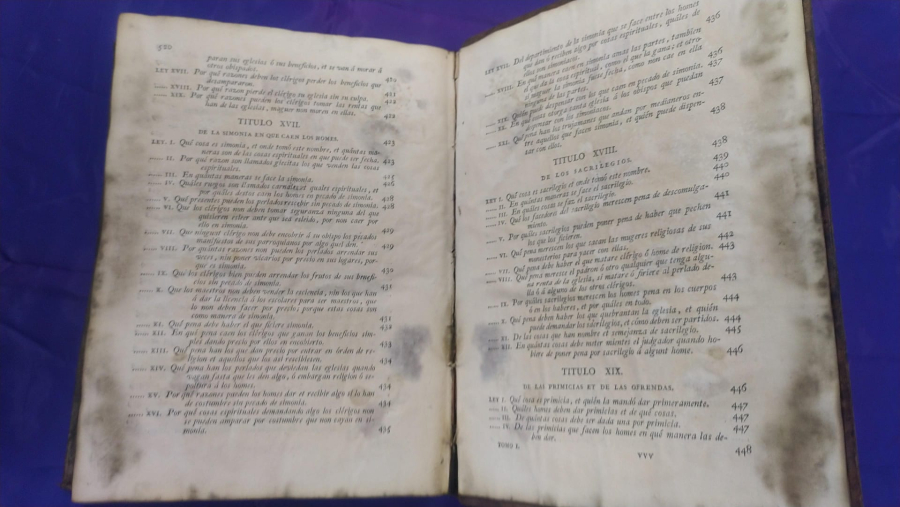 520
paran sus eglesias ó sus beneficios, et se van á morar á
otros obispados. 410
LEY XVII. Por qué razones deben los clérigos perder los beneficios que
desampararon. 411
XVIII. Por qué razon pierde el clérigo su eglesia sin su culpa. 412
XIX. Por qué razones pueden los clérigos tomar las rentas que
han de las eglesias, maguer non moren en ellas. 422
TITULO XVII.
DE LA SIMONIA EN QUE CAEN LOS HOMES.
LEY. I. Qué cosa es simonia, et onde tomó este nombre, et quántas ma-
neras son de las cosas espirituales en que puede ser fecha. 423
II. Por qué razon son llamados giecitas los que venden las cosas
espirituales.
III. En quántas maneras se face la simonia. 425
IV. Quáles ruegos son llamados carnales, et quáles espirituales, et
por quáles dellos caen los homes en pecado de simonia. 428
V. Qué presentes pueden los perlados rescebir sin pecado de simonia. 428
VI. Que los clérigos non deben tomar seguranza ninguna del que
quisieren esleer ante que sea esleido, por non caer por
ello en simonia.
VII. Que ningunt clérigo non debe encobrir á su obispo los pecados
manifiestos de sus parroquianos por algo quel den. 429
VIII. Por quántas razones non pueden los perlados arrendar sus
veces, nin poner vicarios por precio en sus lugares, por-
que es simonia. 430
IX. Que los clérigos bien pueden arrendar los frutos de sus benefi-
cios sin pecado de simonia. 431
X. Que los maestros non deben vender la esciencia, nin los que han
á dar la licencia á los escolares para ser maestros, que
lo non deben facer por precio; porque estas cosas son
como manera de simonia. 431
XI. Qué pena debe haber el que ficiere simonia. 432
XII. En qué pena caen los clérigos que ganan los beneficios sim-
ples dando precio por ellos en encobierto. 433
XIII. Qué pena han los que dan precio por entrar en órden de re-
ligion et aquellos que los asi resciben. 434
XIV. Qué pena han los perlados que deviedan las eglesias quando
vagan fasta que les den algo, ó embargan religion ó se-
poltura á los homes. 434
XV. Por qué razones pueden los homes dar et rescebir algo si lo han
de costumbre sin pecado de simonia. 434
XVI. Por quáles cosas espirituales demandando algo los clérigos non
se pueden amparar por costumbre que non cayan en si-
monia. 435
LEY XVII. Del departimiento de la simonia que se face entre los homes
que dan ó reciben algo por cosas espirituales, quáles de
ellos son 436
XVIII. En qué manera facen simonia amas las partes, tambien
el que da la cosa espiritual, como el que la gana; et otro-
si en qué manera la simonia fuese fecha, como non cae en ella
ninguna de las partes. 436
XIX. Quién puede despensar con los que caen en pecado de simonia. 437
XX. En qué cosas otorga santa eglesia á los obispos que puedan
despensar con los simoniacos. 437
XXI. Qué pena han los trujamanes que andan por medianeros en-
tre aquellos que facen simonia, et quién puede dispen-
sar con ellos. 438
TITULO XVIII.
DE LOS SACRILEGIOS.
LEY I. Qué cosa es sacrilegio et onde tomó este nombre. 438
II. En quántas maneras se face el sacrilegio. 439
III. En quáles cosas se faz el sacrilegio. 440
IV. Los facedores del sacrilegio merescen pena de descomulga-
miento. 440
V. Por quáles sacrilegios pueden poner pena de haber que pechen
los que los ficieren. 441
VI. Qué pena merescen los que sacan las mugeres religiosas de sus
monesterios para yacer con ellas. 441
VII. Qué pena debe haber el que matare clérigo ó home de religion. 442
VIII. Qué pena meresce el padron ó otro qualquier que tenga algu-
na renta de la eglesia, si matare ó firiere al perlado de-
lla ó á alguno de los otros clérigos. 443
IX. Por quáles sacrilegios merescen los homes pena en los cuerpos
ó en los haberes, et por quáles en todo. 443
X. Qué pena deben haber los que quebrantan la eglesia, et quién
puede demandar los sacrilegios, et cómo deben ser partidos. 444
XI. De las cosas que han nombre et semejanza de sacrilegio. 444
XII. En quántas cosas debe meter mientes el judgador quando ho- 445
biere de poner pena por sacrilegio á algunt home. 446
TITULO XIX.
DE LAS PRIMICIAS ET DE LAS OFRENDAS.
LEY I. Qué cosa es primicia, et quién la mandó dar primeramente. 446
II. Quáles homes deben dar primicias et de qué cosas. 447
III. De quántas cosas debe ser dada una por primicia. 447
IV. De las primicias que facen los homes en qué manera las de- 447
ben dar. 448
TOMO I. VVV